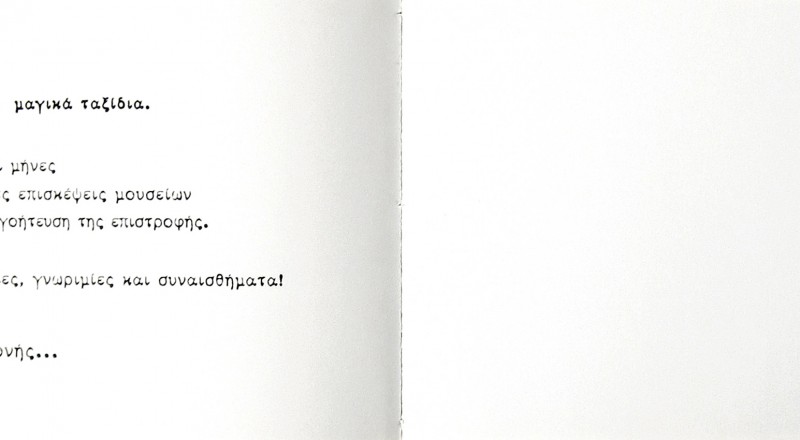 μαγικά ταξίδια.
μήνες
επισκέψεις μουσείων
της επιστροφής.
γνωριμίες και συναισθήματα!